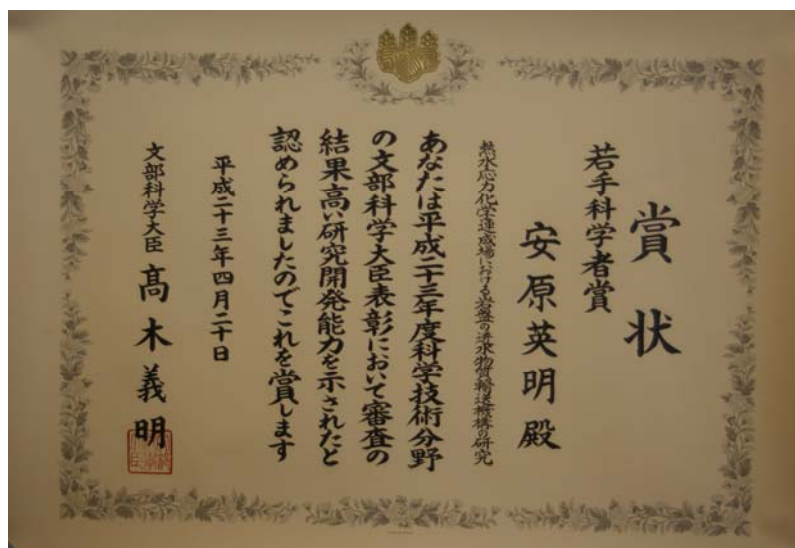 賞状
若手科学者賞
安原英明殿
熱水応力化学連成場における岩盤の透水物質輸送機構の研究
あなたは平成二十三年度科学技術分野
の文部科学大臣表彰において審査の
結果高い研究開発能力を示されたと
認められましたのでこれを賞します
平成二十三年四月二十日
文部科学大臣 髙木義明